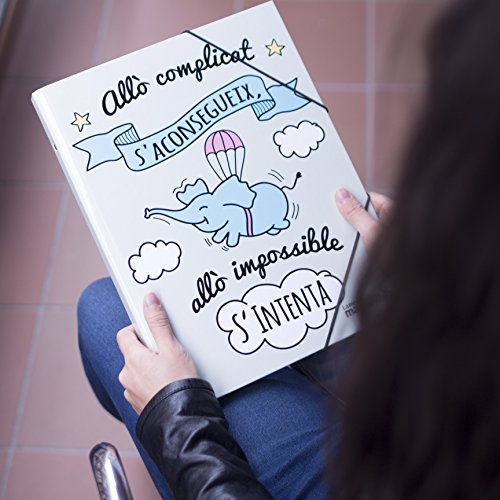 Allò complicat
S'ACONSEGUEIX,
allò impossible
S'INTENTA